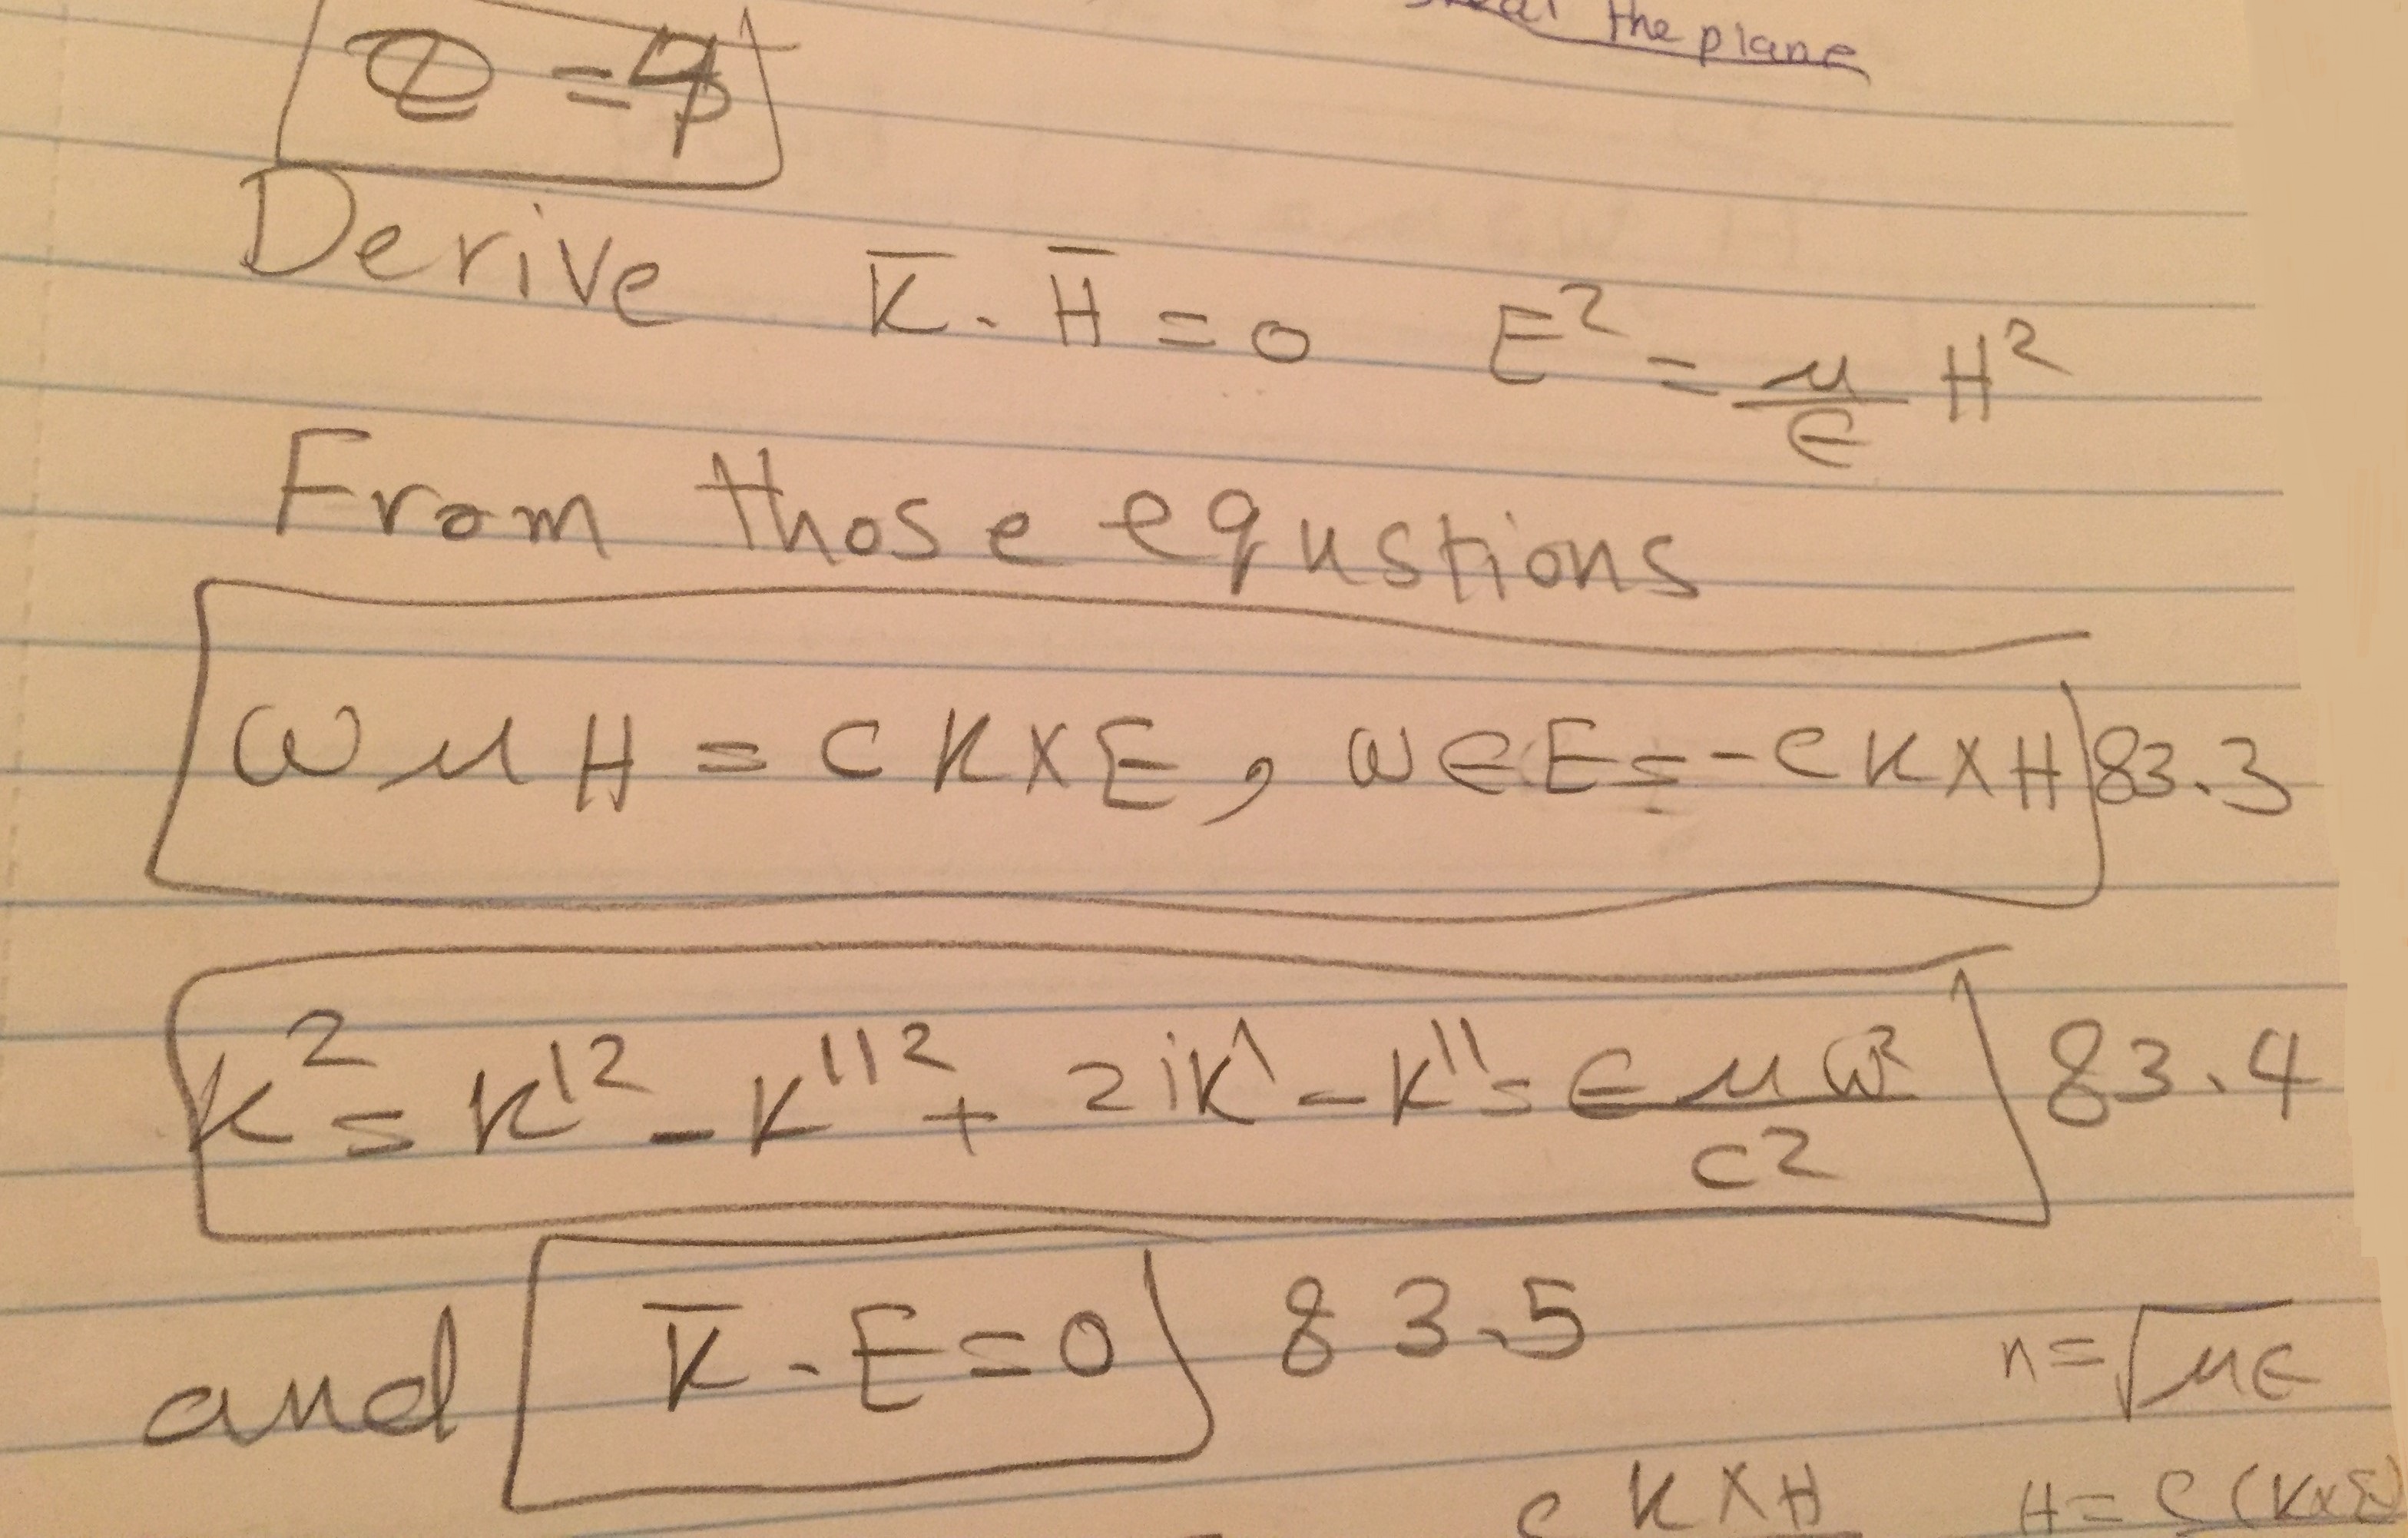 the plane
Q = 4
Derive K̅ . H̅ = 0   E² = μ/ϵ H²
From those equstions
ω μ H = c K × E , ω ϵ E = - c K × H   83.3
K² = K'² - K''² + 2iK' - K'' = ϵμω²/c²   83.4
and K̅ . E = 0   83.5
n = √μϵ
c K × H   H = c (K×E)